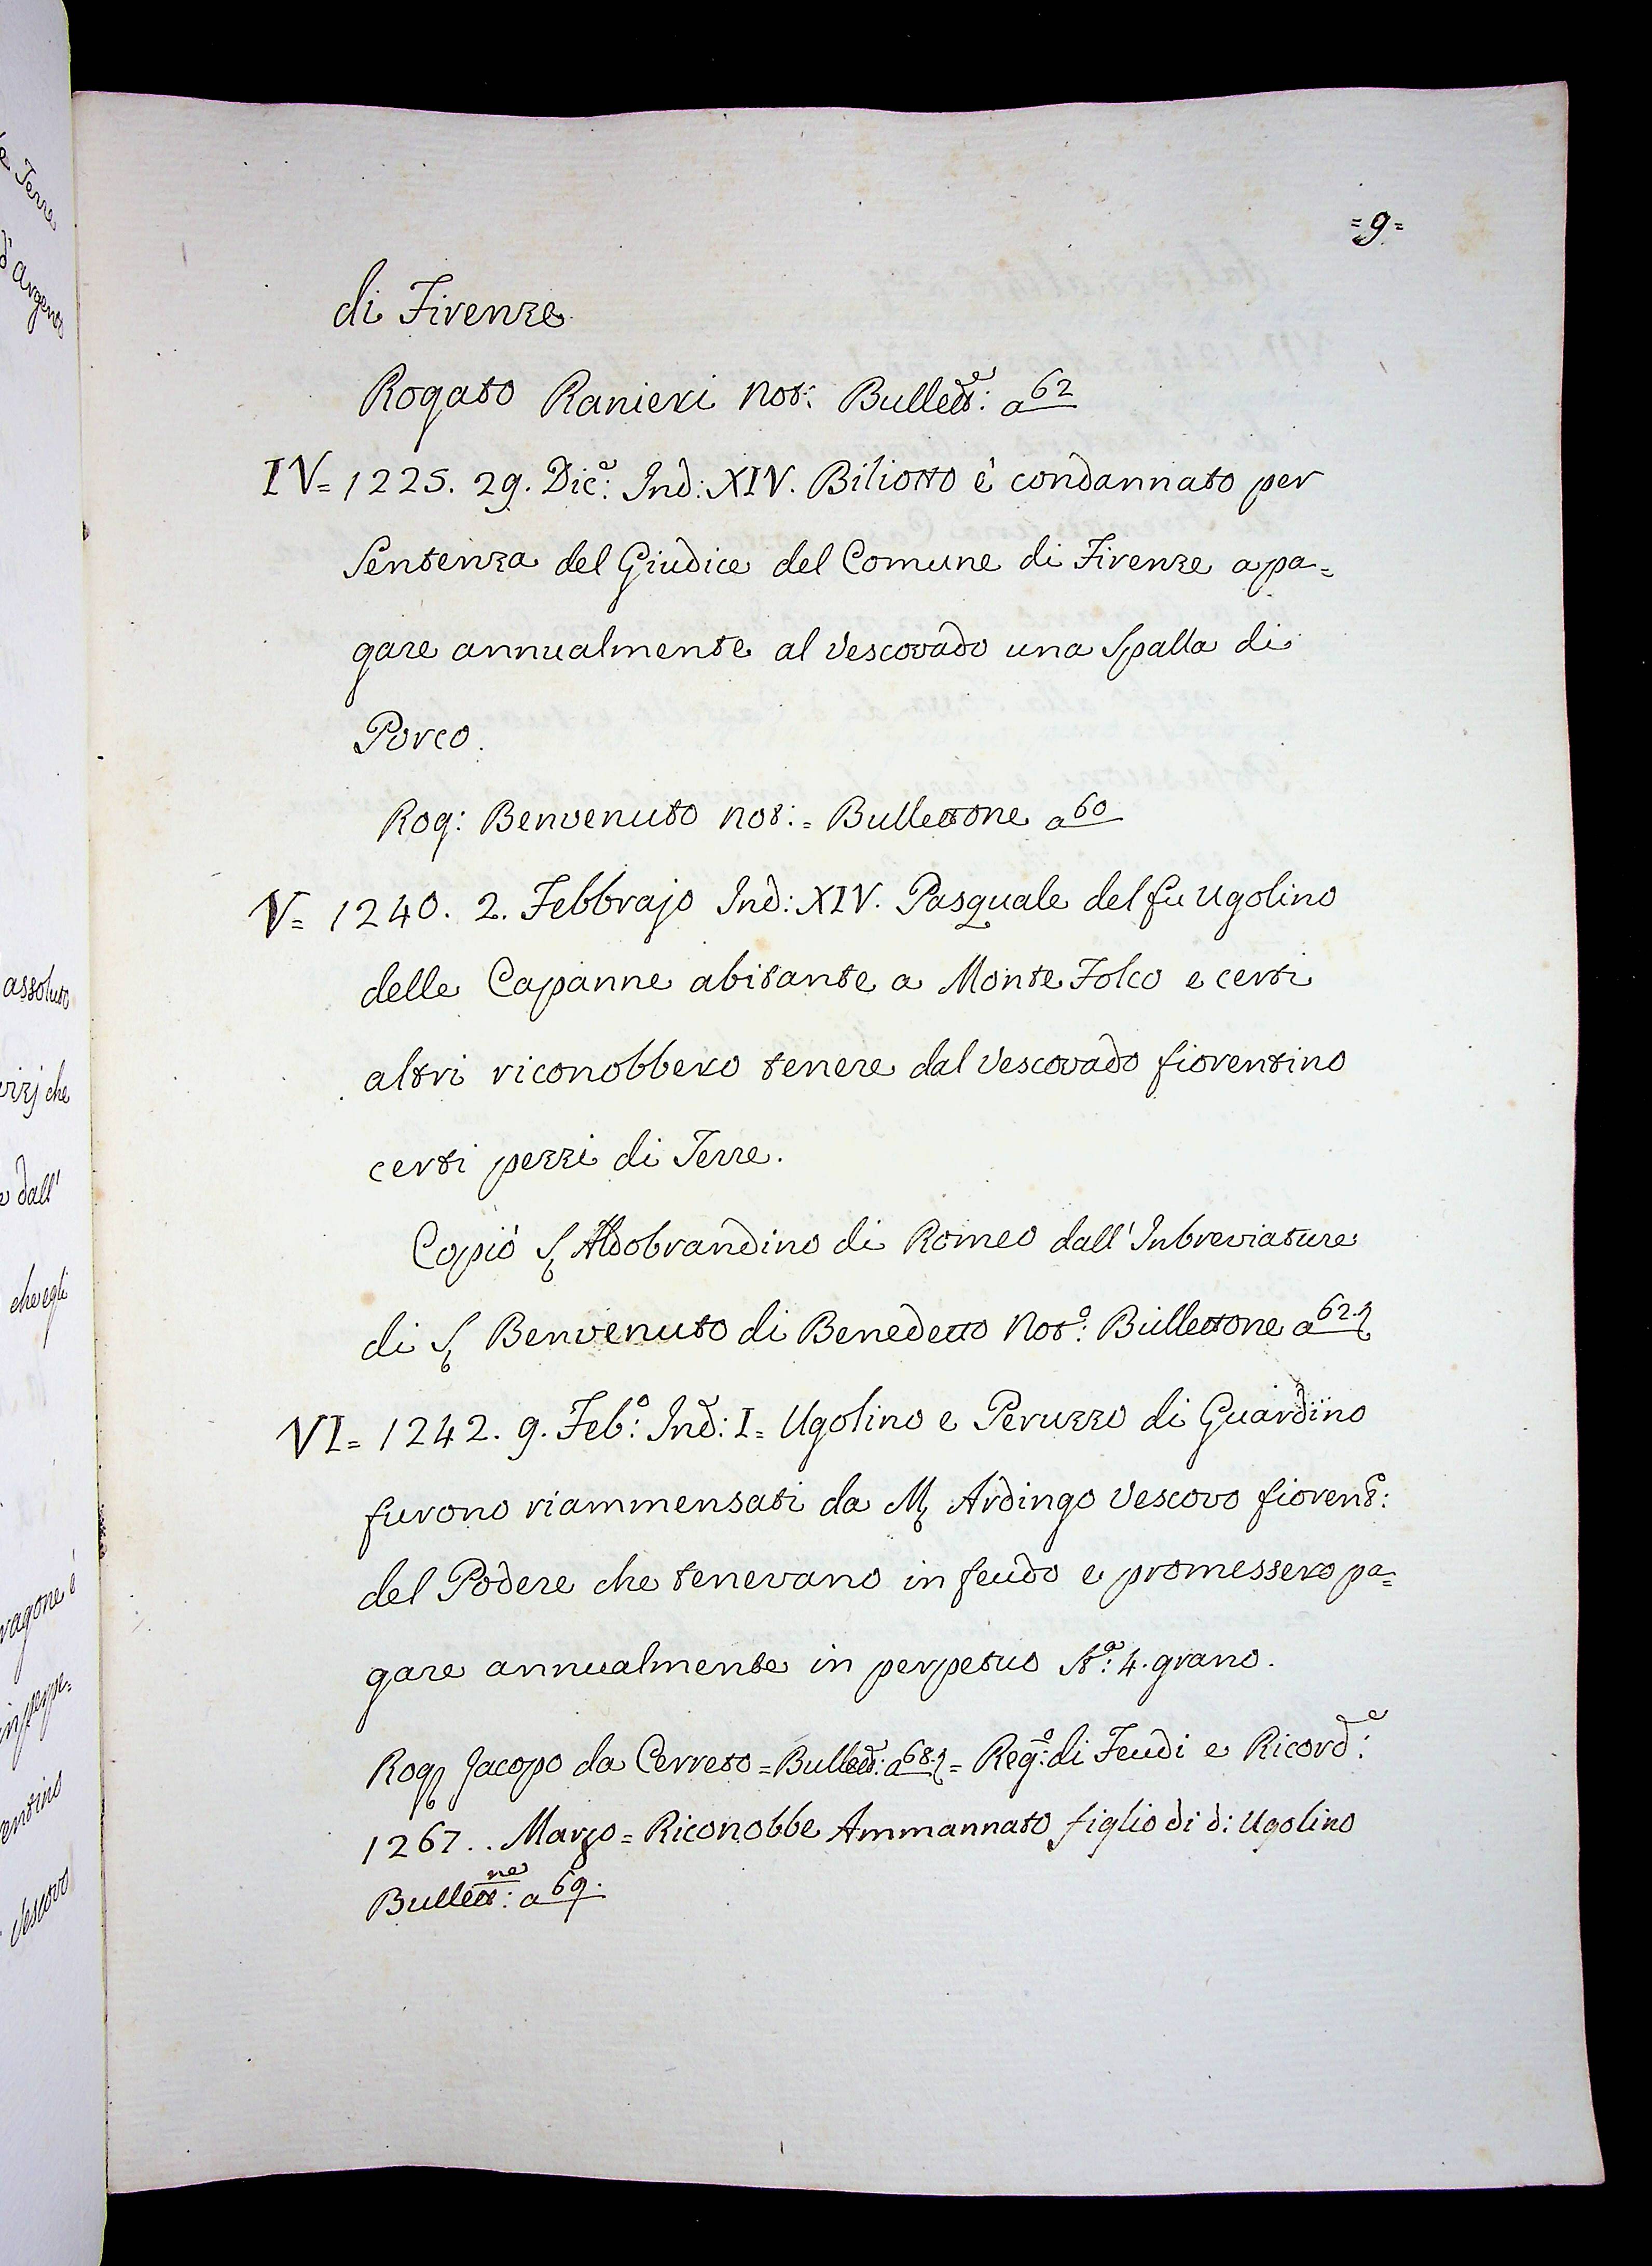 =9=
di Firenze
Rogato Ranieri not: Bullett.e: a 62
IV= 1225. 29. Dic.e: Ind: XIV. Biliotto è condannato per
Sentenza del Giudice del Comune di Firenze a pa=
gare annualmente al Vescovado una Spalla di
Porco.
Rog: Benvenuto not: = Bullettone a 60
V= 1240. 2. Febbrajo Ind: XIV. Pasquale del fu Ugolino
delle Capanne abitante a Monte Folco e certi
altri riconobbero tenere dal Vescovado fiorentino
certi pezzi di Terre.
Copiò S Aldobrandino di Romeo dall'Inbreviature
di S Benvenuto di Benedetto Not.o: Bullettone a 62.
VI= 1242. 9. Feb.o: Ind: I= Ugolino e Peruzzo di Guardino
furono riammensati da M Ardingo Vescovo fiorent:
del Podere che tenevano in feudo e promessero pa=
gare annualmente in perpetuo St.a: 4. grano.
Rog Jacopo da Cerreto = Bullett: a 68. = Reg.o: di Feudi e Ricord.e:
1267.. Marzo = Riconobbe Ammannato figlio di d: Ugolino
Bullett.ne: a 69.
e Terre
d'argento
assoluto
che
e dall'
che egli
in perpe=
Vescovo